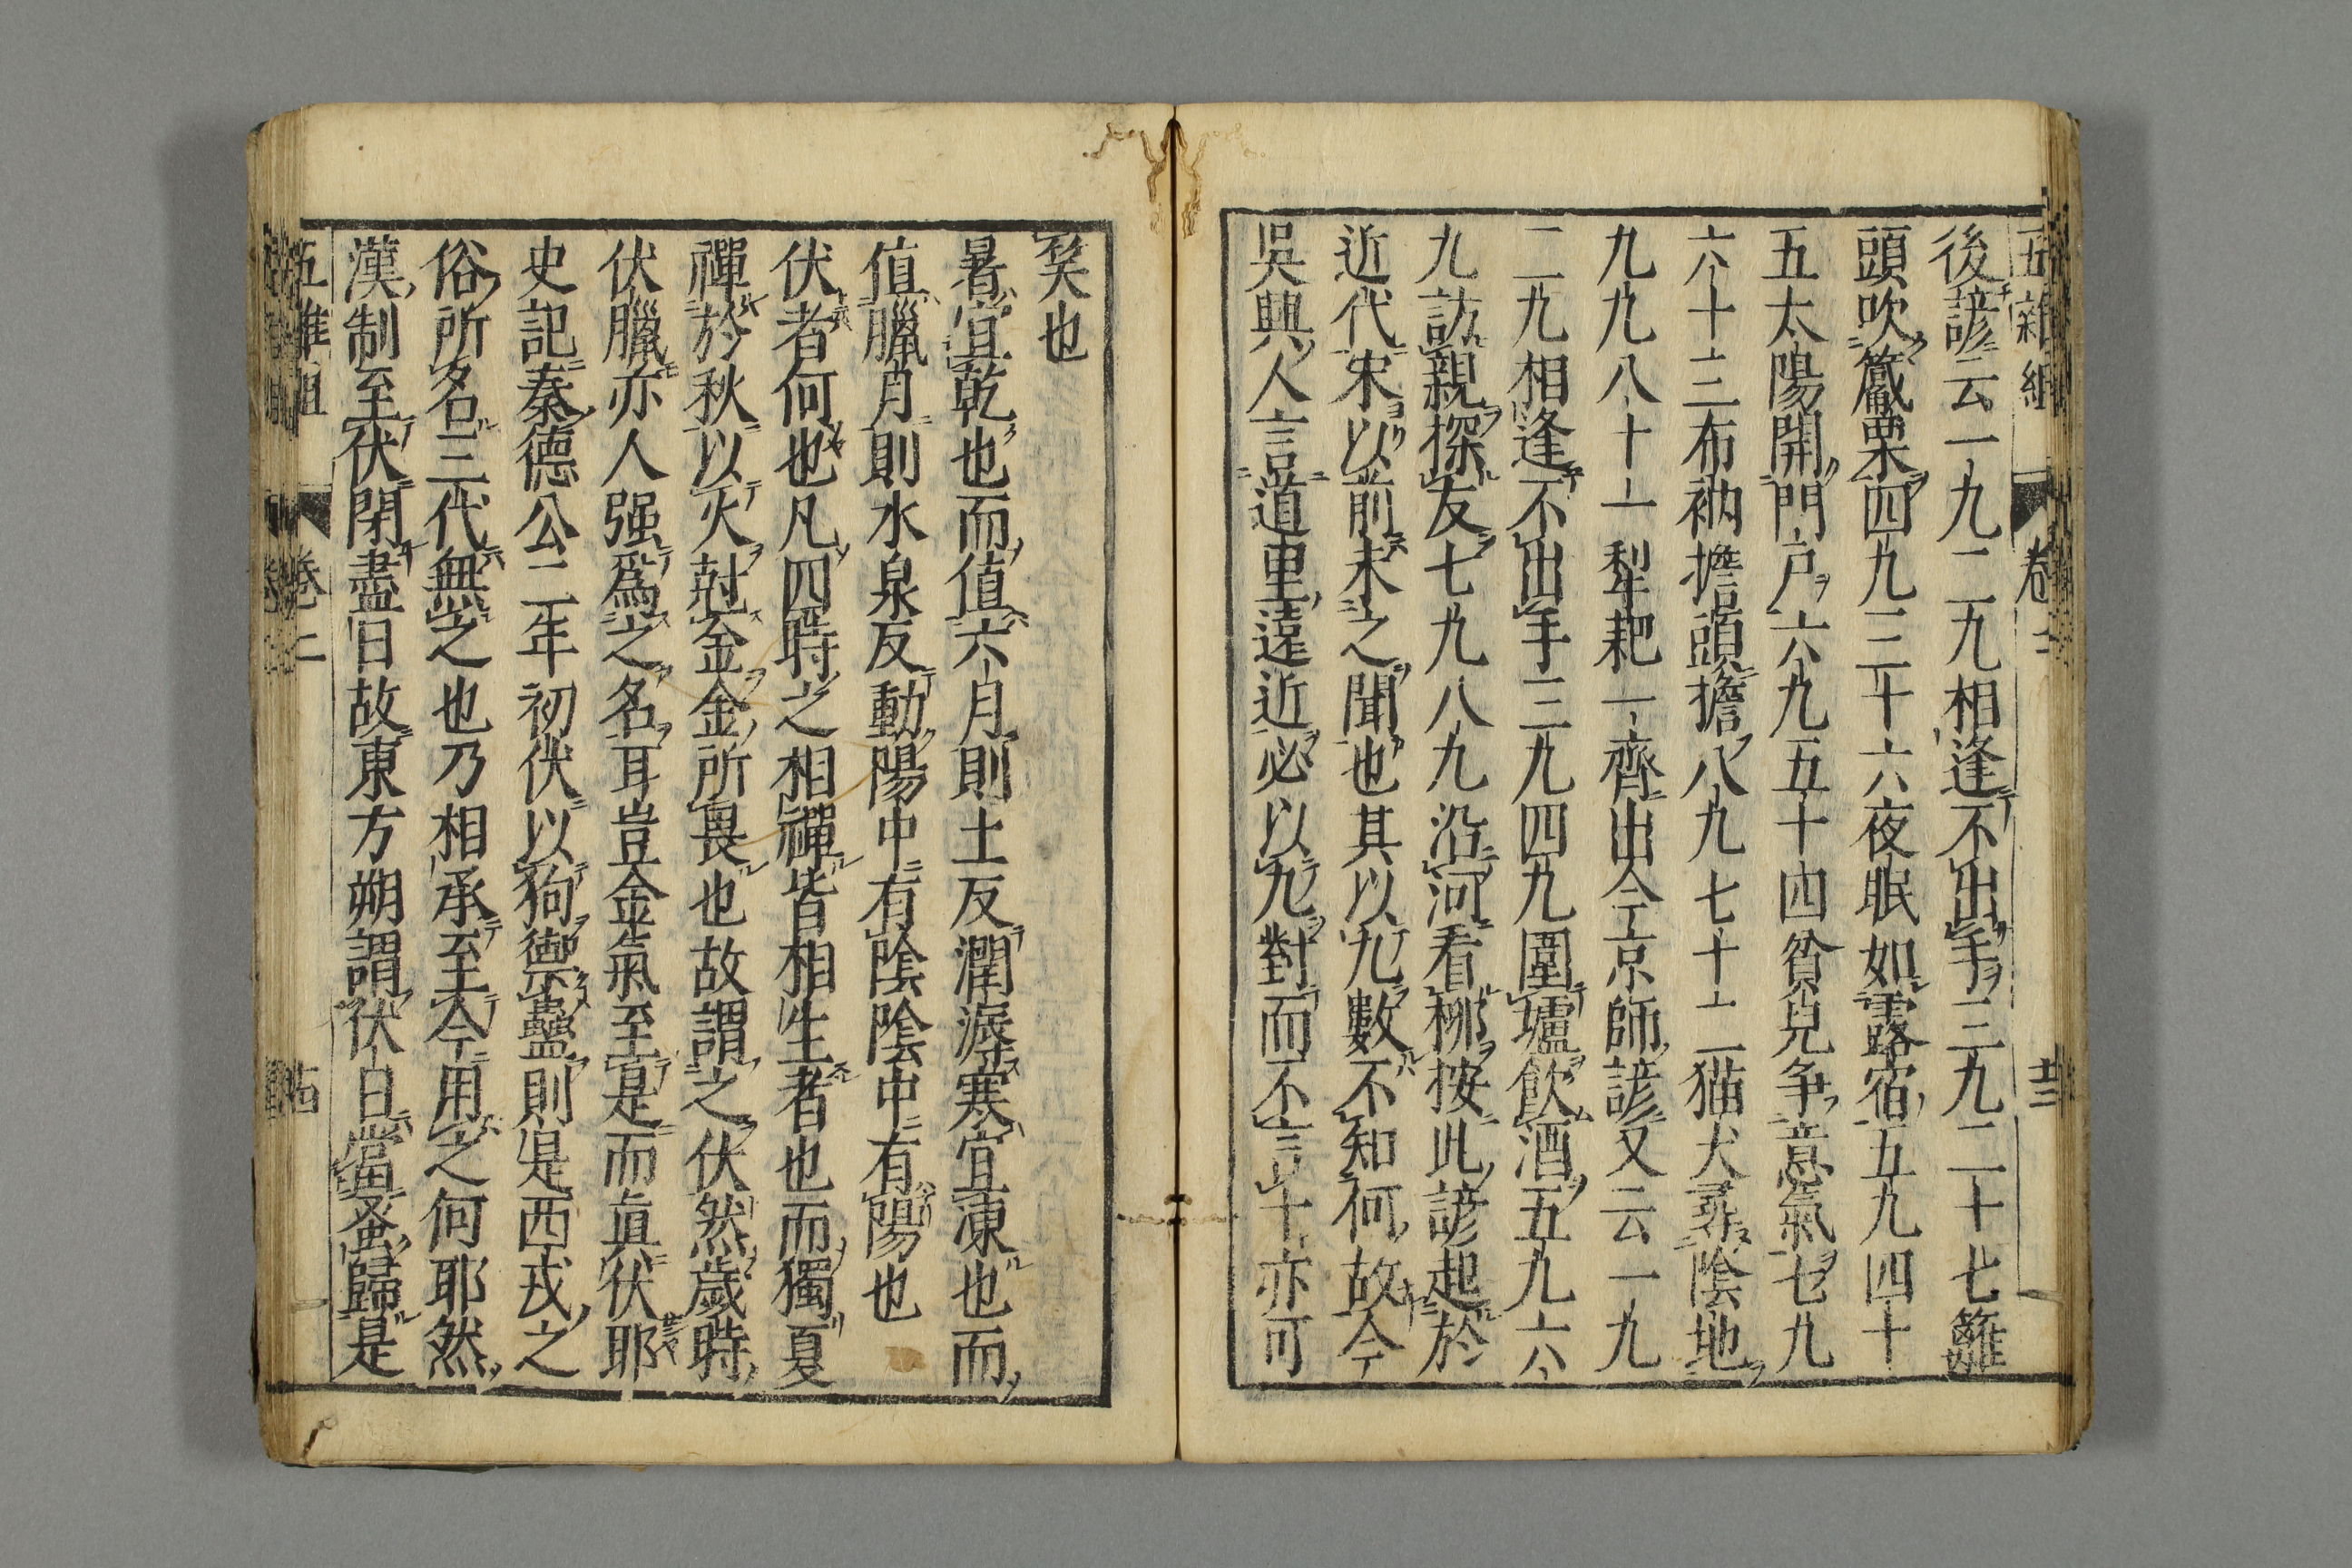 五雜組 卷二 廿三
後諺云一九二九相逢不出手三九二十七籬
頭吹篥栗四九三十六夜眠如露宿五九四十
五太陽開門戶六九五十四貧兒争意氣七九
六十三布衲擔頭擔八九七十二猫犬尋陰地
九九八十一犁耙一齊出今京師諺又云一九
二九相逢不出手三九四九圍壚飲酒五九六
九訪親探友七九八九沿河看柳按此諺起於
近代宋以前未之聞也其以九數不知何故今
吳興人言道里遠近必以九對而不言十亦可
笑也
暑宜乾也而值六月則土反潤溽寒宜凍也而
值臘月則水泉反動陽中有陰陰中有陽也
伏者何也凡四時之相禪皆相生者也而獨夏
禪於秋以火尅金金所畏也故謂之伏然歲時
伏臘亦人强爲之名耳豈金氣至是而眞伏耶
史記秦德公二年初伏以狗禦蠱則是西戎之
俗所名三代無之也乃相承至今用之何耶然
漢制至伏閉盡日故東方朔謂伏日當蚤歸是
五雜組 卷二